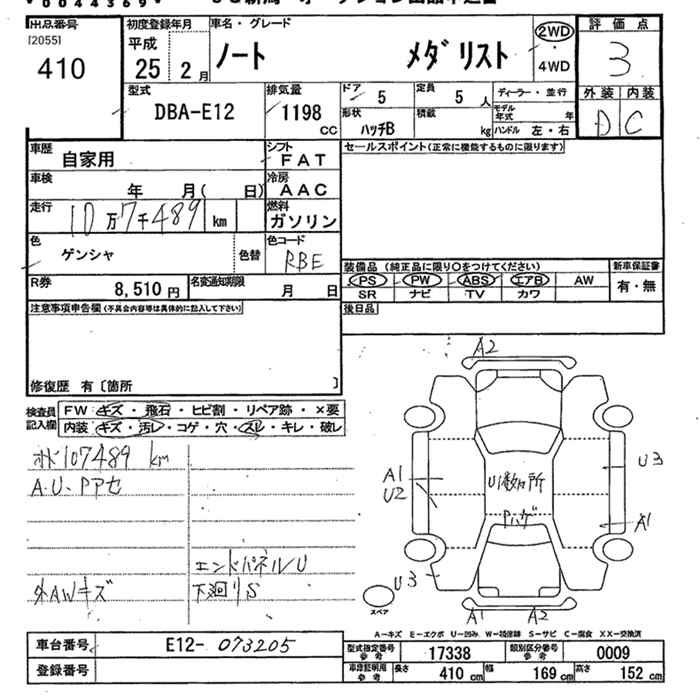 出品番号
[2055]
410
初度登録年月
平成
25 年 2 月
車名・グレード
ノート メダリスト
2WD
・
4WD
評価点
3
外装 内装
D C
型式
DBA-E12
排気量
1198
CC
ドア 5
定員 5 人
形状 ハッチB
積載 kg
ディーラー・並行
モデル年式 年
ハンドル 左・右
車歴
自家用
シフト
FAT
車検
年 月( 日)
冷房
AAC
走行
10万7千489 km
燃料
ガソリン
色
ゲンシャ
色替
色コード
RBE
R券
8,510 円
名変通知期限
月 日
セールスポイント(正常に機能するものに限ります)
装備品 (純正品に限り○をつけてください)
新車保証書
PS PW ABS エアB AW
SR ナビ TV カワ
有・無
後日品
注意事項申告欄(不具合内容等は具体的に記入して下さい)
修復歴 有〔箇所 〕
検査員
記入欄
FW キズ・飛石・ヒビ割・リペア跡・×要
内装 キズ・汚レ・コゲ・穴・スレ・キレ・破レ
107489 km
A.U.Pアセ
エンドパネルU
外AWキズ
下廻りS
A2
A1
U2
U数ヶ所
Pハゲ
U3
A1
U3
A1 A2
スペア
A-キズ E-エクボ U-凹み W-補修跡 S-サビ C-腐食 XX-交換済
車台番号
E12-073205
登録番号
型式指定番号
参考
17338
類別区分番号
参考
0009
車庫証明用
参考
長さ 410 cm 幅 169 cm 高さ 152 cm